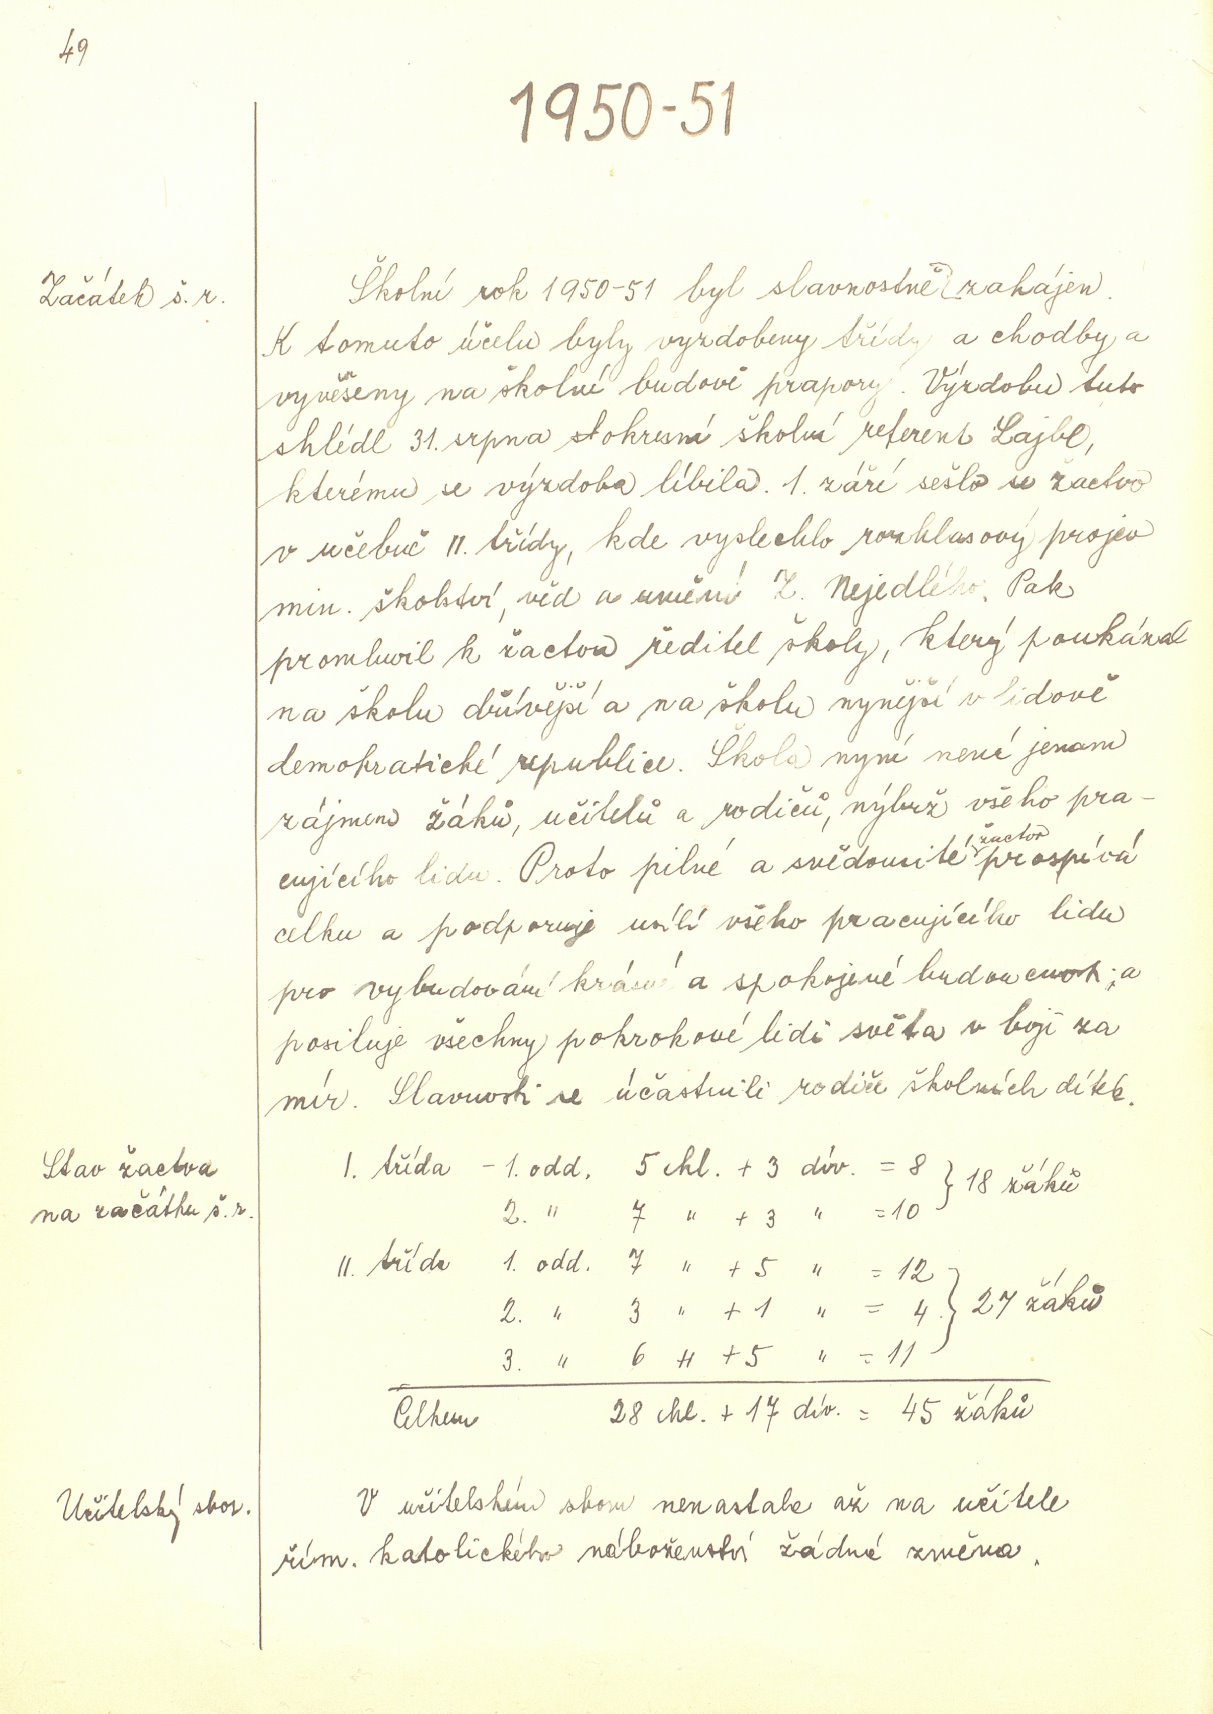 49
1950-51
Začátek š. r.
Školní rok 1950-51 byl slavnostně zahájen.
K tomuto účelu byly vyzdobeny třídy a chodby a
vyvěšeny na školní budově prapory. Výzdobu tuto
shlédl 31. srpna okresní školní referent Lajbl,
kterému se výzdoba líbila. 1. září sešlo se žactvo
v učebně II. třídy, kde vyslechlo rozhlasový projev
min. školství, věd a umění Z. Nejedlého. Pak
promluvil k žactvu ředitel školy, který poukázal
na školu dřívější a na školu nynější v lidově
demokratické republice. Škola nyní není jenom
zájmem žáků, učitelů a rodičů, nýbrž všeho pra-
cujícího lidu. Proto pilné a svědomité žactvo prospívá
celku a podporuje úsilí všeho pracujícího lidu
pro vybudování krásné a spokojené budoucnosti a
posiluje všechny pokrokové lidi světa v boji za
mír. Slavnosti se účastnili rodiče školních dítek.
Stav žactva
na začátku š. r.
I. třída - 1. odd. 5 chl. + 3 dív. = 8 } 18 žáků
2. " 7 " + 3 " = 10
II. třída 1. odd. 7 " + 5 " = 12
2. " 3 " + 1 " = 4 } 27 žáků
3. " 6 " + 5 " = 11
Celkem 28 chl. + 17 dív. = 45 žáků
Učitelský sbor.
V učitelském sboru nenastala až na učitele
řím. katolického náboženství žádná změna.